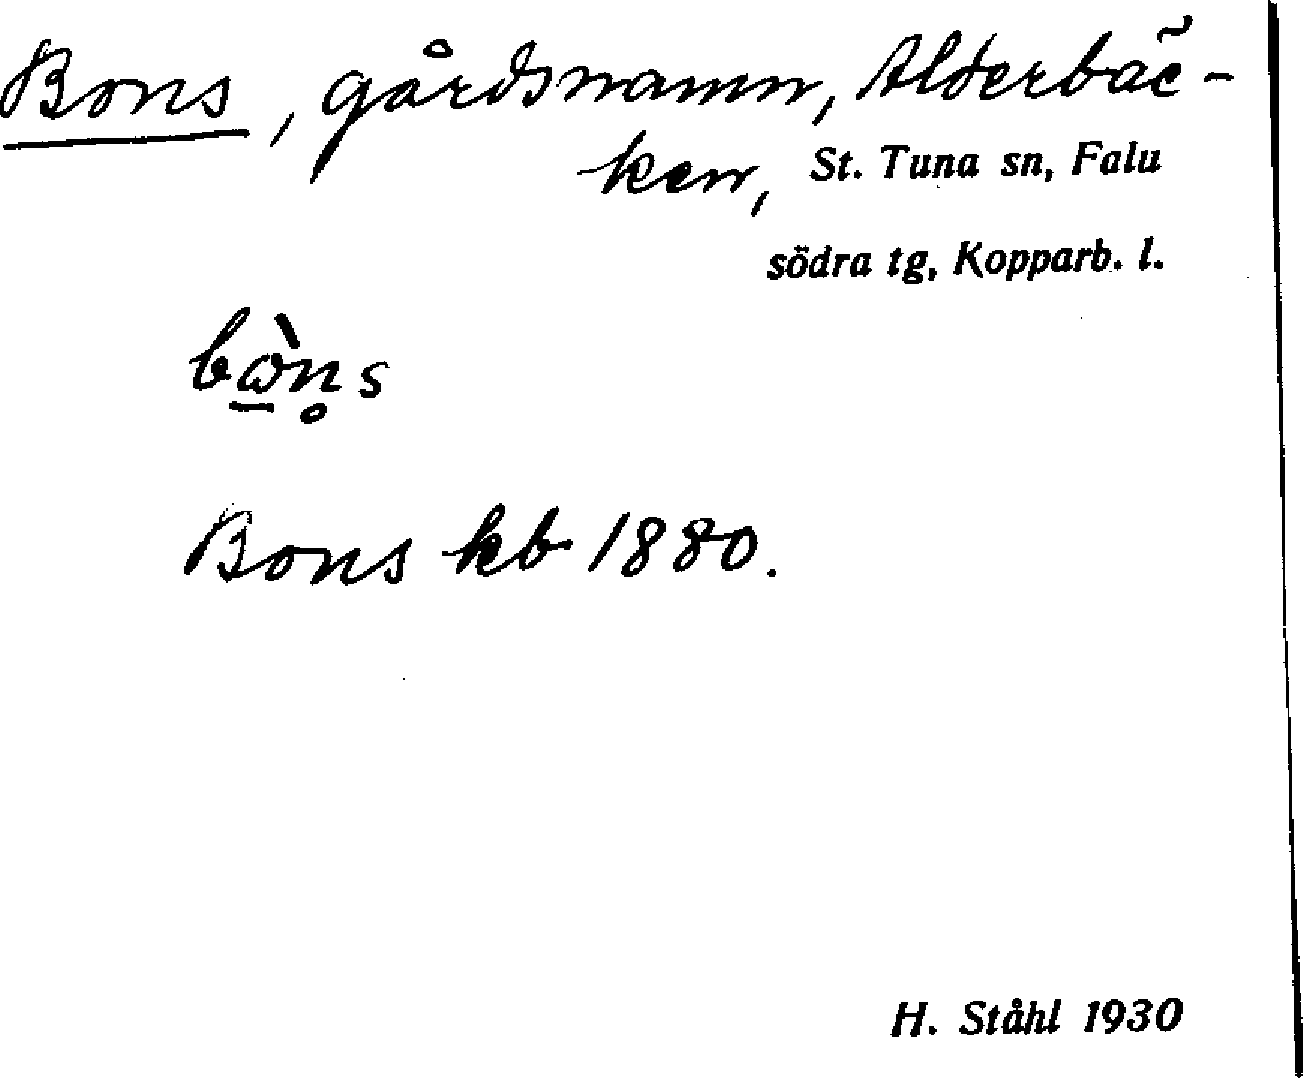 Bons, gårdsnamn, Alderbäc-
ken, St. Tuna sn, Falu
södra tg, Kopparb. l.
bὼ̠n̥s
Bons kb 1880.
H. Ståhl 1930